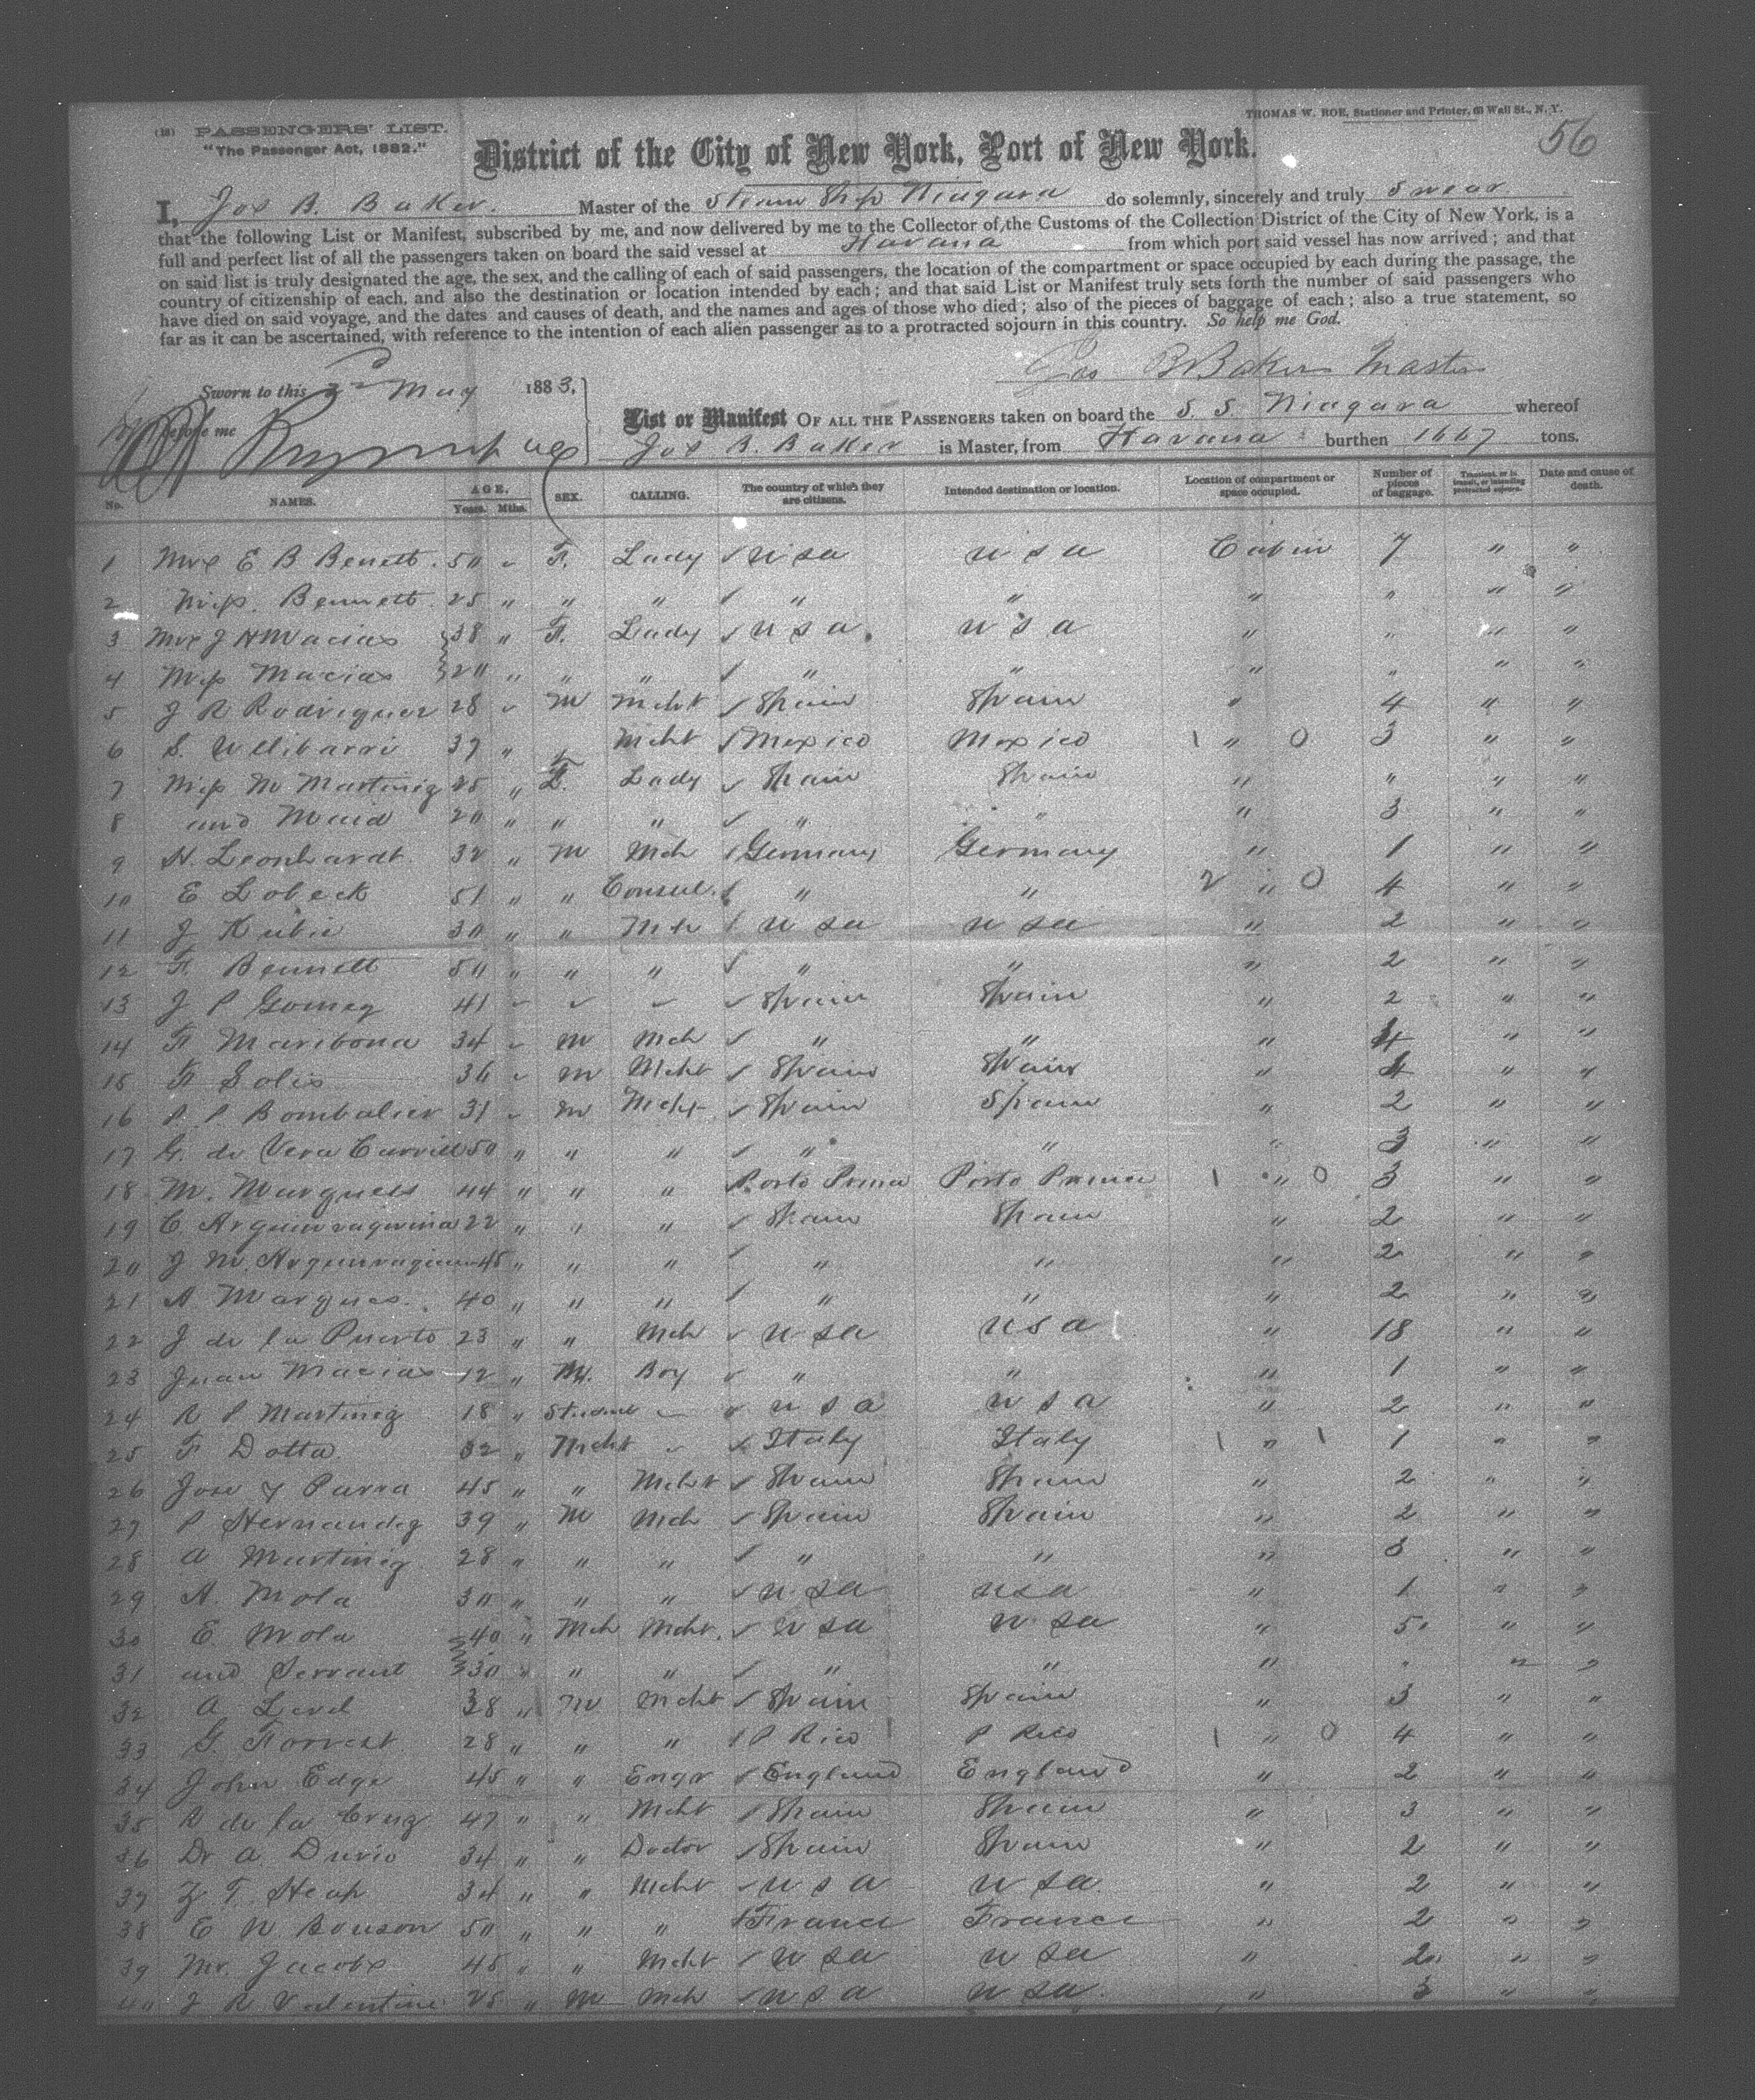 (18) PASSENGERS' LIST.
"The Passenger Act, 1882."
THOMAS W. ROE, Stationer and Printer, 63 Wall St., N. Y.
56
District of the City of New York, Port of New York.
I, Jos B. Baker. Master of the Steam Ship Niagara do solemnly, sincerely and truly Swear
that the following List or Manifest, subscribed by me, and now delivered by me to the Collector of the Customs of the Collection District of the City of New York, is a
full and perfect list of all the passengers taken on board the said vessel at Havana from which port said vessel has now arrived; and that
on said list is truly designated the age, the sex, and the calling of each of said passengers, the location of the compartment or space occupied by each during the passage, the
country of citizenship of each, and also the destination or location intended by each; and that said List or Manifest truly sets forth the number of said passengers who
have died on said voyage, and the dates and causes of death, and the names and ages of those who died; also of the pieces of baggage of each; also a true statement, so
far as it can be ascertained, with reference to the intention of each alien passenger as to a protracted sojourn in this country. So help me God.
Jos B Baker Master
Sworn to this May 1883,
before me
List or Manifest OF ALL THE PASSENGERS taken on board the S. S. Niagara whereof
Jos B. Baker is Master, from Havana burthen 1667 tons.
No. NAMES. AGE. Years. Mths. SEX. CALLING. The country of which they are citizens. Intended destination or location. Location of compartment or space occupied. Number of pieces of baggage. Transient, or in transit, or intending protracted sojourn. Date and cause of death.
1 Mrs E B Benett. 50 " F. Lady ✓ U S a U S a Cabin 7 " "
2 Miss. Bennett 25 " " " ✓ " " " " " "
3 Mrs J H Macias 38 " F. Lady ✓ U S a. U S a " " " "
4 Miss Macias 20 " " " ✓ " " " " " "
5 J R Rodriguez 28 " M Mcht ✓ Spain Spain " 4 " "
6 S. Ulibarri 37 " Mcht ✓ Mexico Mexico 1 " 0 3 " "
7 Miss M Martinez 25 " F. Lady ✓ Spain Spain " " " "
8 and Maid 20 " " " ✓ " " " 3 " "
9 H. Leonhardt. 32 " M Mch ✓ Germany Germany " 1 " "
10 E Lobeck 51 " " Consul. ✓ " " 2 " 0 4 " "
11 J Kubie 30 " " Mch ✓ U Sa U Sa " 2 " "
12 F. Bennett 50 " " " ✓ " " " 2 " "
13 J P Gomez 41 " " " ✓ Spain Spain " 2 " "
14 F Maribona 34 " M Mch ✓ " " " 4 " "
15 F Solis 36 " M Mcht ✓ Spain Spain " 4 " "
16 P. P Bombalier 31 " M Mcht ✓ Spain Spain " 2 " "
17 G. de Vera 50 " " " ✓ " " " 3 " "
18 M. Marquess 44 " " " Porto Porto 1 " 0 3 " "
19 C. 22 " " " ✓ Spain Spain " 2 " "
20 J M. 45 " " " ✓ " " " 2 " "
21 A Marques. 40 " " " ✓ " " " 2 " "
22 J de la Puerto 23 " " Mch ✓ U Sa U S a " 18 " "
23 Juan Macias 12 " M. Boy ✓ " " " 1 " "
24 R P Martinez 18 " Student " ✓ U S a U S a " 2 " "
25 F Dotta 32 " Mcht " ✓ Italy Italy 1 " 1 1 " "
26 Jose Y Parra 45 " " Mcht ✓ Spain Spain " 2 " "
27 P Hernandez 39 " M Mch ✓ Spain Spain " 2 " "
28 A Martinez 28 " " " ✓ " " " 3 " "
29 A. Mola 30 " " " ✓ U Sa U S a " 1 " "
30 E. Mola 40 " Mch Mcht. ✓ U Sa U Sa " 5 " "
31 and Servant 30 " " " ✓ " " " " " "
32 A 38 " M Mcht ✓ Spain Spain " 3 " "
33 G. Forrest 28 " " " ✓ P Rico P Rico 1 " 0 4 " "
34 John Edge 45 " " Engr ✓ England England " 2 " "
35 R de la Cruz 47 " " Mcht ✓ Spain Spain " 3 " "
36 Dr A. Durio 34 " " Doctor ✓ Spain Spain " 2 " "
37 T. Heap 34 " " Mcht ✓ U S a U Sa. " 2 " "
38 E W Bonson 50 " " " ✓ France France " 2 " "
39 Mr. Jacobs 45 " " Mcht ✓ U Sa U Sa " 2 " "
40 J R Valentine 25 " M Mch ✓ U S a U Sa. " 3 " "